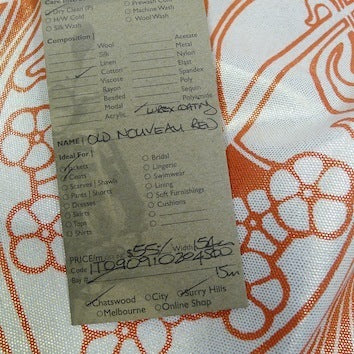 Care Instr
Dry Clean (P)
Prewash Cold
H/W Cold
Machine Wash
Silk Wash
Wool Wash
Composition
Wool
Acetate
Silk
Metal
Linen
Nylon
Cotton
Elast
Viscose
Spandex
Rayon
Poly
Beaded
Sequin
Modal
Polyamide
Acrylic
LUREX COATING
NAME: OLD NOUVEAU RED
Ideal For
Jackets
Bridal
Coats
Lingerie
Scarves | Shawls
Swimwear
Pants | Shorts
Lining
Dresses
Soft Furnishings
Skirts
Cushions
Tops
Shirts
PRICE/m $55/ Width
Code
Bay #
15m
Chatswood City Surry Hills
Melbourne Online Shop